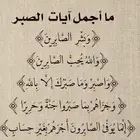 ما أجمل آيات الصبر
﴿وَبَشِّرِ الصَّابِرِينَ﴾
﴿وَاللَّهُ يُحِبُّ الصَّابِرِينَ﴾
﴿وَاصْبِرْ وَمَا صَبْرُكَ إِلَّا بِاللَّهِ﴾
﴿وَجَزَاهُمْ بِمَا صَبَرُوا جَنَّةً وَحَرِيرًا﴾
﴿إِنَّمَا يُوَفَّى الصَّابِرُونَ أَجْرَهُمْ بِغَيْرِ حِسَابٍ﴾